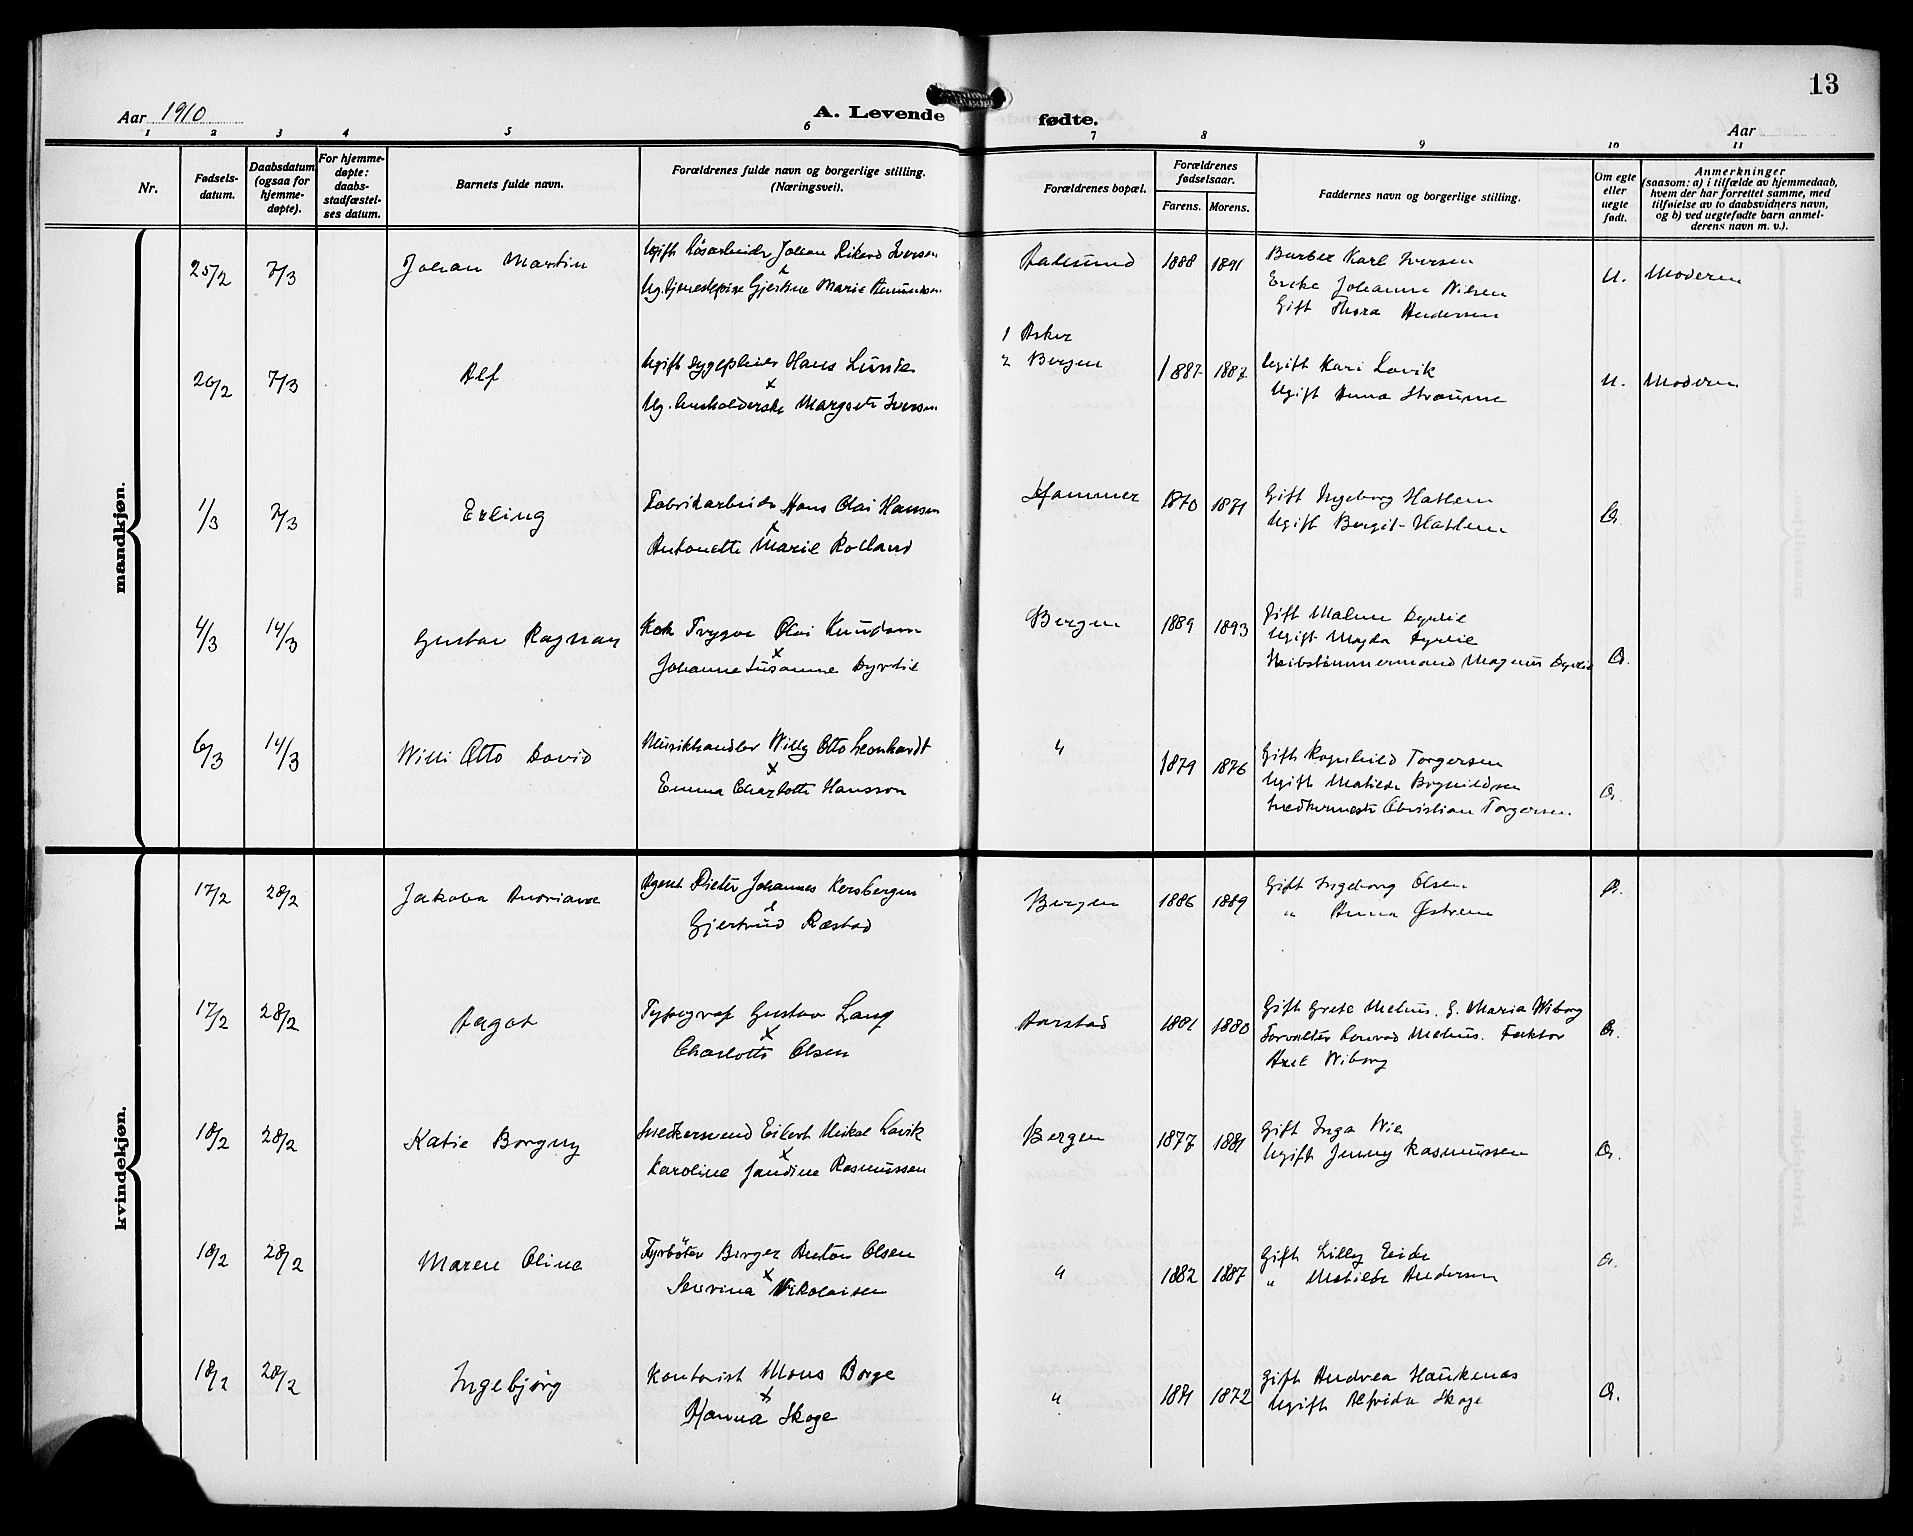 13
Aar 1910
A. Levende fødte.
Aar
1 2 3 4 5 6 7 8 9 10 11
Nr.
Fødsels-
datum.
Daabsdatum
(ogsaa for
hjemme-
døpte).
For hjemme-
døpte:
daabs-
stadfæstel-
ses datum.
Barnets fulde navn.
Forældrenes fulde navn og borgerlige stilling.
(Næringsvei).
Forældrenes bopæl.
Forældrenes
fødselsaar.
Farens. Morens.
Faddernes navn og borgerlige stilling.
Om egte
eller
uegte
født.
Anmerkninger
(saasom: a) i tilfælde av hjemmedaab,
hvem der har forrettet samme, med
tilføielse av to daabsvidners navn,
og b) ved uegtefødte barn anmel-
derens navn m. v.).
mandkjøn.
25/2 7/3 Johan Martin
Ugift Løsarbeider Johan Rikard Iversen
Ug. tjenestepige Gjertine Marie
Aalesund 1888 1891
Barber Karl Iversen
Enke Johanne Nilsen
Gift Thora Andersen
U. Moderen
26/2 7/3 Alf
Ugift sygepleier Hans
x
Ug. husholderske Margrete Iversen
1 Asker
2 Bergen
1887 1887
Ugift Kari Lavik
Ugift Anna Straume
U. Moderen
1/3 7/3 Erling
Fabrikarbeider Hans Olai Hansen
x
Antonette Marie Rolland
Hammer 1870 1871
Gift Ingeborg Hatlem
Ugift Bergit Hatlem
4/3 14/3 Gustav Ragnar
Kok Trygve Olai Knudsen
x
Johanne Susanne Dyrdie
Bergen 1889 1893
Gift Malene Dyrdie
Ugift Magda Dyrdie
Skibstømmermand Magnus Dyrdie
6/3 14/3 Willi Otto David
Musikhandler Willy Otto Leonhardt
x
Emma Charlotte Hansson
" 1879 1876
Gift Ragnhild Torgersen
Ugift Matilde Brynildsen
Snedkermester Christian Torgersen
kvindekjøn.
17/2 28/2 Jakoba Andriane
Agent Pieter Johannes Kersbergen
x
Gjertrud Ræstad
Bergen 1886 1889
Gift Ingeborg Olsen
" Anna Østrem
17/2 28/2 Aagot
Typograf Gustav Lang
x
Charlotte Olsen
Aarstad 1881 1880
Gift Grete Mehus. G. Maria Wiborg
Forvalter Konrad Mehus. Faktor
Axel Wiborg
18/2 28/2 Katie Borgny
Snedkersvend Eilert Mikal Lavik
x
Karoline Jandine Rasmussen
Bergen 1877 1881
Gift Inga Wie
Ugift Jenny Rasmussen
18/2 28/2 Maren Olina
Fyrbøter Birger Anton Olsen
x
Severina Nikolaisen
" 1882 1887
Gift Lilly Eide
" Matilde Andersen
18/2 28/2 Ingebjørg
Kontorist Mons Borge
x
Hanna Skage
" 1872
Gift Andrea Haukenæs
Ugift Alfrida Skage